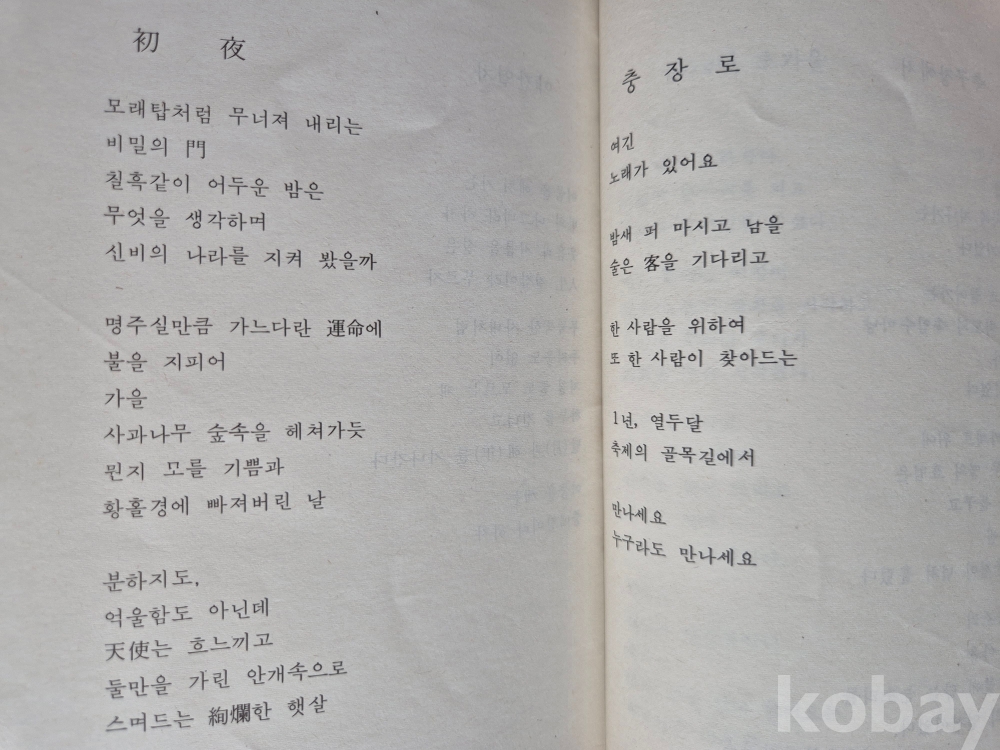 初 夜
모래탑처럼 무너져 내리는
비밀의 門
칠흑같이 어두운 밤은
무엇을 생각하며
신비의 나라를 지켜 봤을까
명주실만큼 가느다란 運命에
불을 지피어
가을
사과나무 숲속을 헤쳐가듯
뭔지 모를 기쁨과
황홀경에 빠져버린 날
분하지도,
억울함도 아닌데
天使는 흐느끼고
둘만을 가린 안개속으로
스며드는 絢爛한 햇살
충 장 로
여긴
노래가 있어요
밤새 퍼 마시고 남을
술은 客을 기다리고
한 사람을 위하여
또 한 사람이 찾아드는
1년, 열두달
축제의 골목길에서
만나세요
누구라도 만나세요
kobay